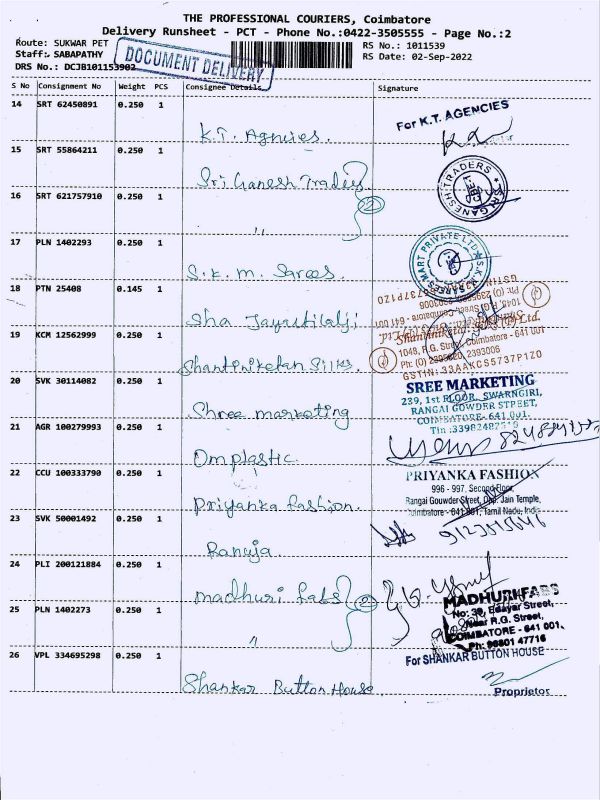 THE PROFESSIONAL COURIERS, Coimbatore
Delivery Runsheet - PCT - Phone No.:0422-3505555 - Page No.:2
Route: SUKWAR PET
RS No.: 1011539
Staff: SABAPATHY
RS Date: 02-Sep-2022
DRS No.: DCJB101153902
DOCUMENT DELIVERY
S No Consignment No Weight PCS Consignee Details Signature
14 SRT 62450891 0.250 1
K.T. Agncies.
For K.T. AGENCIES
15 SRT 55864211 0.250 1
Sri Ganesh Traders
SRI GANESH TRADERS
CBE-1
16 SRT 621757910 0.250 1
"
2
17 PLN 1402293 0.250 1
S.K.M. Sarees.
S.K. SAREES MART PRIVATE LTD
18 PTN 25408 0.145 1
Sha Jayantilalji
19 KCM 12562999 0.250 1
Shantiniketan Silks.
1048, R.G. Street, Coimbatore - 641 001
2393006
GSTIN: 33AAKCS5737P1Z0
20 SVK 30114082 0.250 1
Shree marketing
SREE MARKETING
239, 1st FLOOR, SWARNGIRI,
RANGAI GOWDER STREET,
COIMBATORE- 641 001.
21 AGR 100279993 0.250 1
Omplastic.
22 CCU 100333790 0.250 1
Priyanka fashion.
PRIYANKA FASHION
996 - 997, Second Floor,
Rangai Gouwder Street, Opp. Jain Temple,
Coimbatore - 641 001, Tamil Nadu, India
23 SVK 50001492 0.250 1
Ranuja
24 PLI 200121884 0.250 1
madhuri fabs
2
MADHURI FABS
No: 39, Edayar Street,
Near R.G. Street,
COIMBATORE - 641 001.
Ph: 98801 47716
25 PLN 1402273 0.250 1
"
26 VPL 334695298 0.250 1
Shankar Button House.
For SHANKAR BUTTON HOUSE
Proprietor